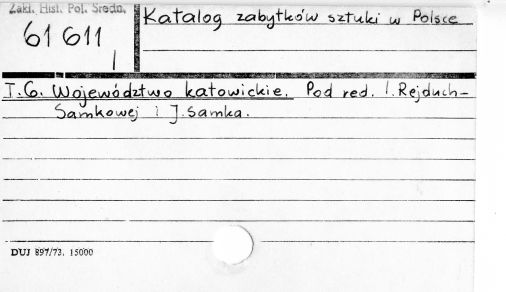 Zakł. Hist. Pol. Średn.
61 611
1
Katalog zabytków sztuki w Polsce
T.6. Województwo katowickie. Pod red. I. Rejduch-
Samkowej i J. Samka.
DUJ 897/73. 15000